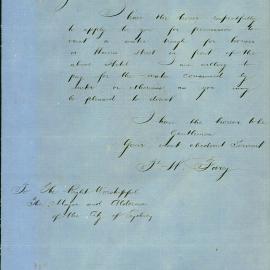 I have the honor respectfully
to apply to you for permission to
erect a water trough for horses
in Street in front of the
above Hotel. I am willing to
pay for the water consumed by
meter or otherwise as you may
be pleased to direct
I have the honor to be
Gentlemen
Your most obedient Servant
To The Right Worshipful
The Mayor and Aldermen
of the City of Sydney